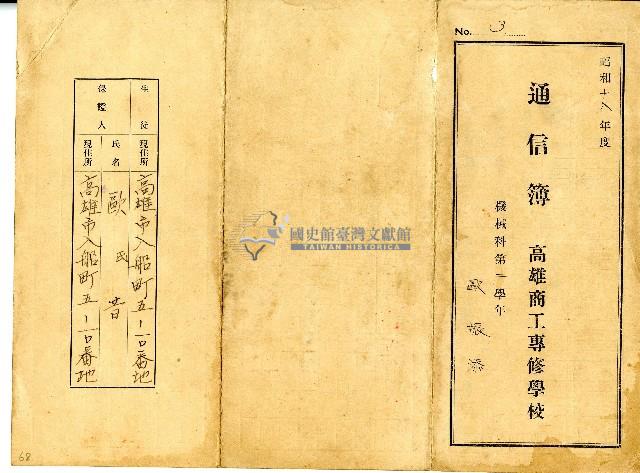 No. 3
昭和十八年度
通信簿 高雄商工專修學校
機械科第一學年
歐振添
國史館臺灣文獻館
TAIWAN HISTORICA
生徒 現住所 高雄市入船町五ノ一〇番地
保證人 氏名 歐氏昔
現住所 高雄市入船町五ノ一〇番地
68